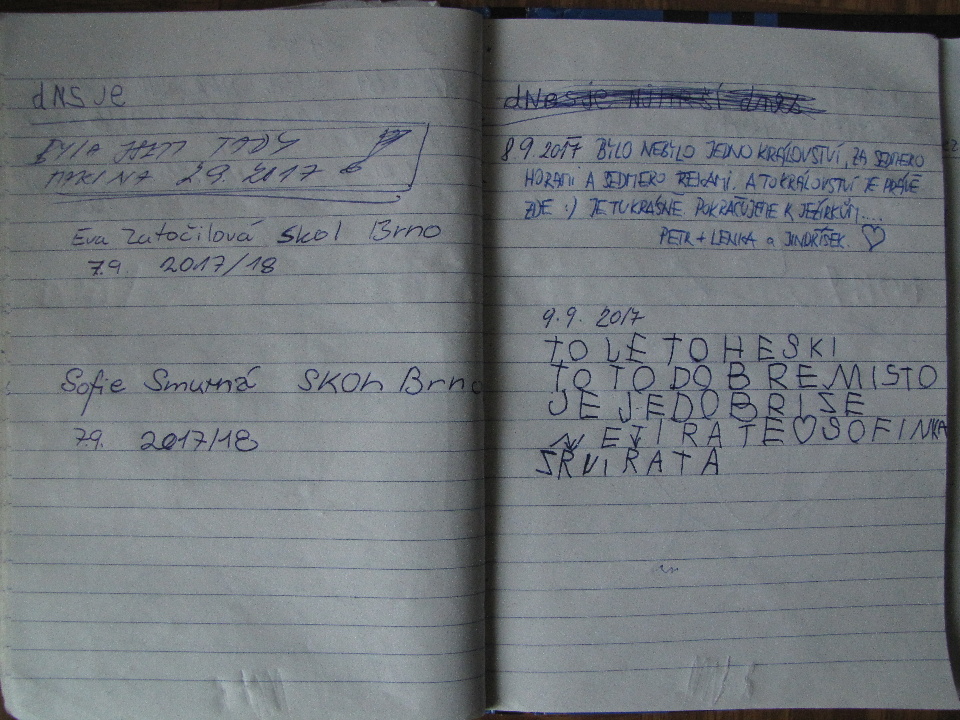 dNS JE
BYLA JSEM TADY
MARINA 2.9. 2017
Eva Zatočilová Skol Brno
7.9. 2017/18
Sofie Smurná SKOH Brno
7.9. 2017/18
dNes je dnes
8 9. 2017 BYLO NEBYLO JEDNO KRÁLOVSTVÍ, ZA SEDMERO
HORAMI A SEDMERO ŘEKAMI. A TO KRÁLOVSTVÍ JE PRÁVĚ
ZDE :) JE TU KRÁSNE. POKRAČUJEME K JEZÍRKŮM.....
PETR + LENKA a JINDŘÍŠEK. ♡
9.9. 2017
TO LE TO HESKI
TO TO DOBRE MISTO
JE JEDOBRISE
EJIRATE♡SOFINKA
SRVIRATA